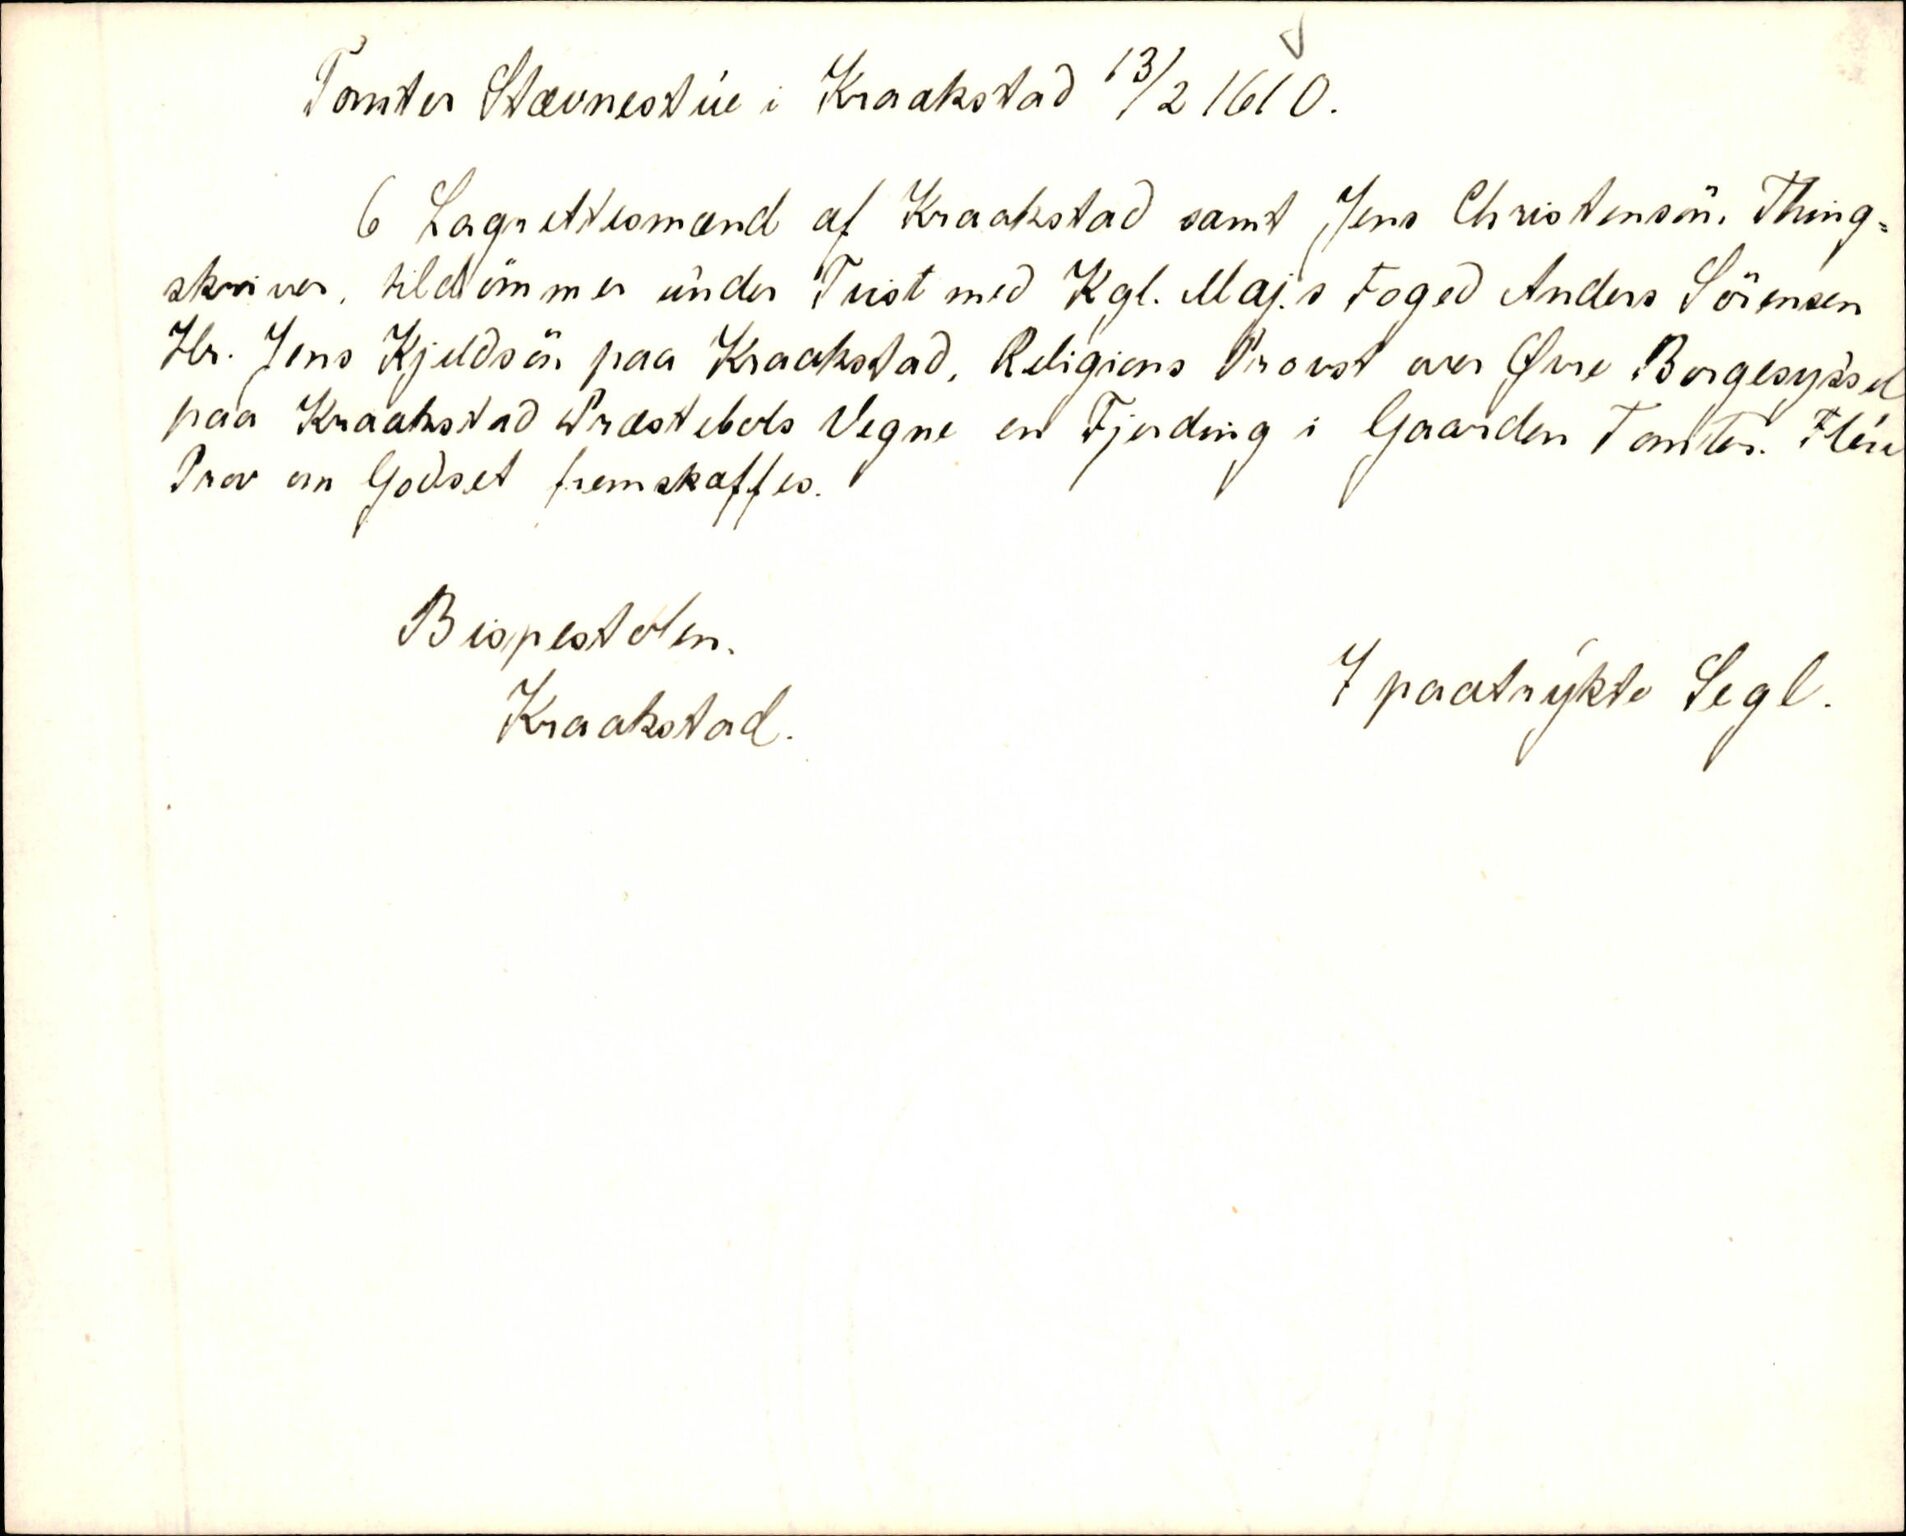 Tomter Stævnestue i Kraakstad 13/2 1610.
6 Lagrettesmænd af Kraakstad samt Jens Christensön, Thing-
skriver, tildömmer under Tvist med Kgl. Maj.s Foged Anders Sörensen
Hr. Jens Kjeldsön paa Kraakstad, Religions Provst over Øvre Borgesyssel
paa Kraakstad Præstebols Vegne en Fjerding i Gaarden Tomter. Flere
Prov om Godset fremskaffes.
Bispestolen.
Kraakstad.
7 paatrykte Segl.